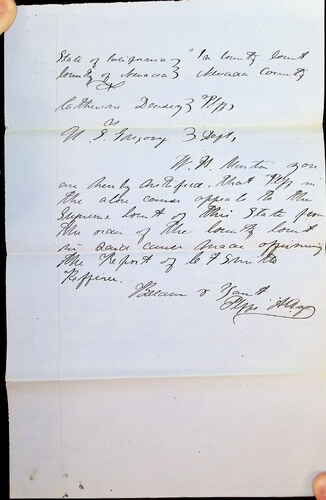 State of California } In County Court
County of Nevada } Nevada County
Catherine } Plff,
vs
Gregory } Deft,
W. H. you
are hereby notified that Plff in
the above cause appeals to the
Supreme Court of this State from
the order of the County Court
in said cause made affirming
the Report of C F Smith
Refferee
&
Plffs Attys